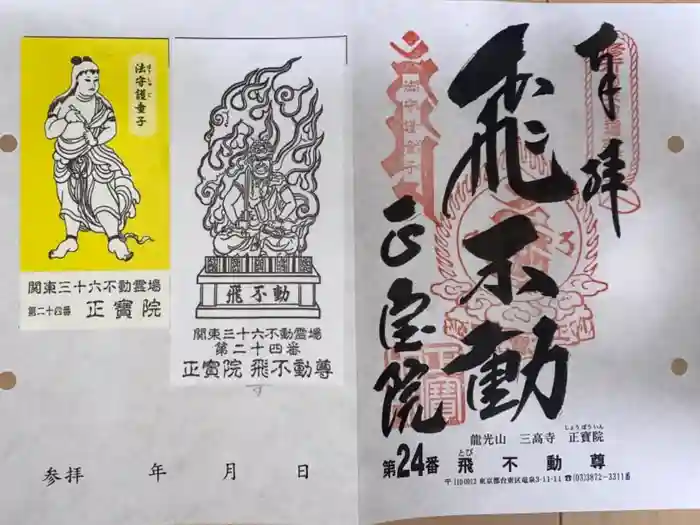 法守護童子
ほうしゅご
関東三十六不動霊場
第二十四番 正寶院
飛不動
関東三十六不動霊場
第二十四番
正寶院 飛不動尊
参拝 年 月 日
奉拝
飛不動
正宝院
法守護童子
龍光山 三高寺 正寶院
しょうぼういん
とび
第24番 飛不動尊
〒110-0012 東京都台東区竜泉3-11-11 ☎(03)3872-3311番